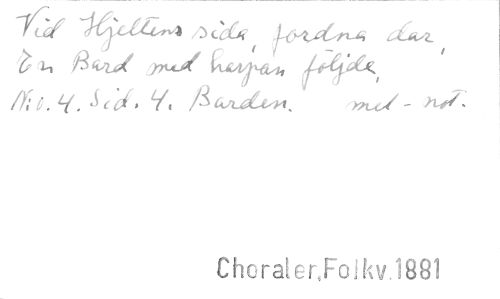 Vid Hjeltens sida, fordna dar,
En Bard med harpan följde,
N:o. 4. Sid. 4. Barden. mel-not.
Choraler, Folkv. 1881